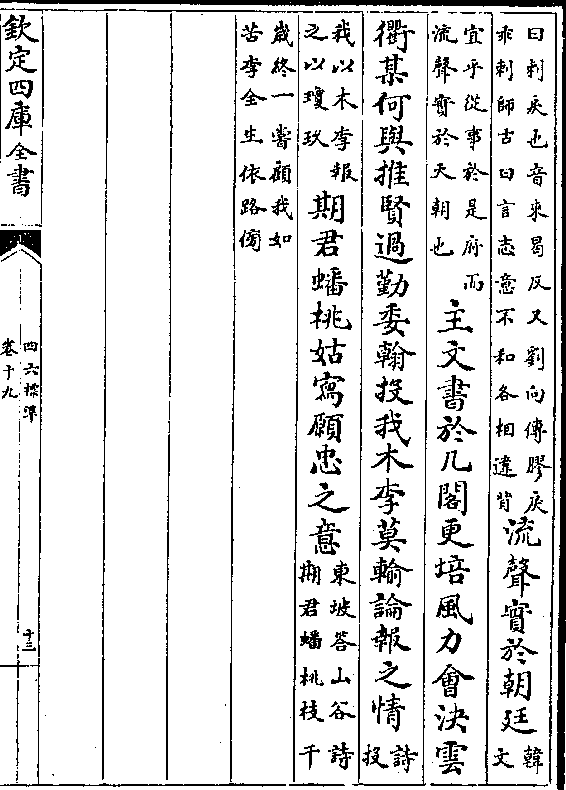 曰剌戾也音來曷反又劉向傳膠戾
乖剌師古曰言志意不和各相違背
流聲實於朝廷
韓
文
宜乎從事於是府而
流聲實於天朝也
主文書於几閣更培風力會決雲
衢某何與推賢過勤委翰投我木李莫輸論報之情
詩
投
我以木李報
之以瓊玖
期君蟠桃姑寫願忠之意
東坡答山谷詩
期君蟠桃枝千
歲終一嘗顧我如
苦李全生依路傍
欽定四庫全書
四六標準
卷十九
十三